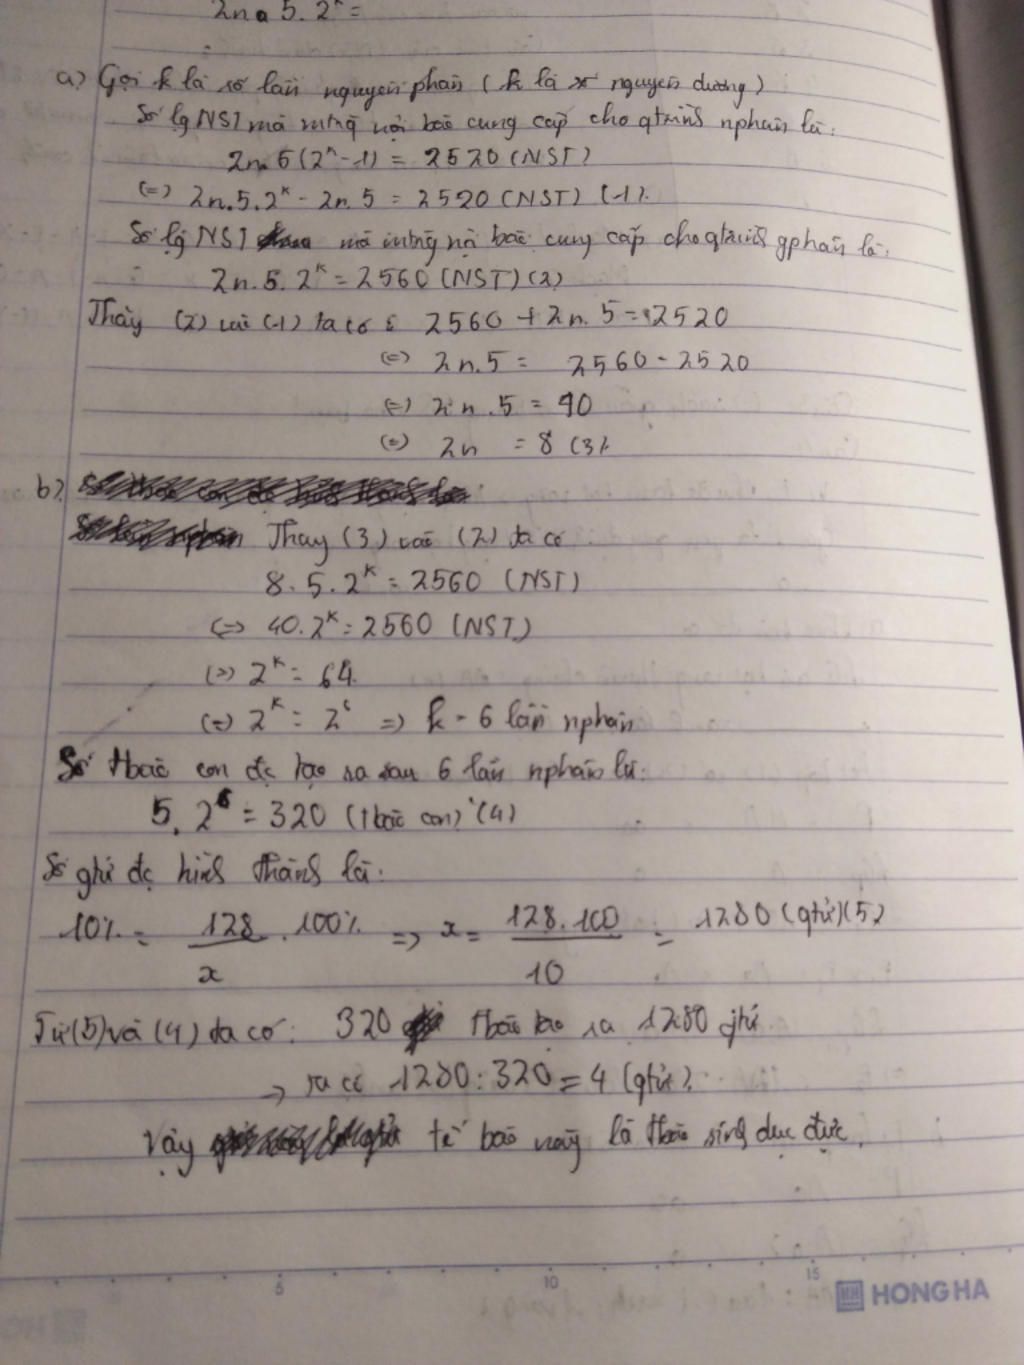 2n . 5. 2^k =
a) Gọi k là số lần nguyên phân ( k là số nguyên dương )
Số lg NST mà mtrg nội bào cung cấp cho qtrình nphân là:
2n.5(2^k-1) = 2520 (NST)
(=) 2n.5.2^k - 2n.5 = 2520 (NST) (1).
Số lg NST mà mtrg nộ bào cung cấp cho qtrình gphân là:
2n.5.2^k = 2560 (NST) (2)
Thay (2) vào (1) ta có : 2560 + 2n.5 = 2520
(=) 2n.5 = 2560 - 2520
(=) 2n.5 = 40
(=) 2n = 8 (3).
b)
Thay (3) vào (2) ta có
8.5.2^k = 2560 (NST)
(=) 40.2^k = 2560 (NST)
(=) 2^k = 64.
(=) 2^k = 2^6 => k = 6 lần nphân
Số tbào con đc tạo ra sau 6 lần nphân là:
5. 2^6 = 320 (tbào con) (4)
Số gtử đc hình thành là:
10% = 128/x . 100% => x = 128.100/10 = 1280 (gtử) (5)
Từ (5) và (4) ta có: 320 tbào tạo ra 1280 gtử
=> ta có 1280 : 320 = 4 (gtử).
Vậy tế bào này là tbào sinh dục đực.
5 10 15
HH HONG HA